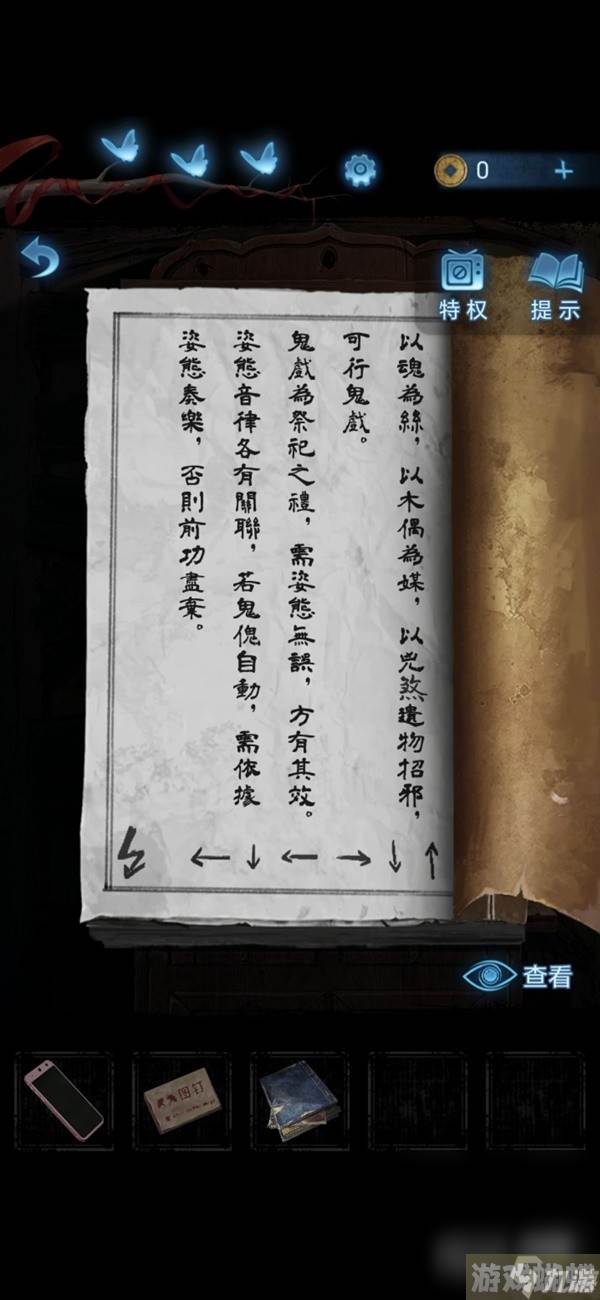 0
特权
提示
以魂為絲，以木偶為媒，以兇煞遺物招邪，
可行鬼戲。
鬼戲為祭祀之禮，需姿態無誤，方有其效。
姿態音律各有關聯，若鬼傀自動，需依據
姿態奏樂，否則前功盡棄。
↑ ↓ → ← ↓ ←
查看
图钉
游戏
九游